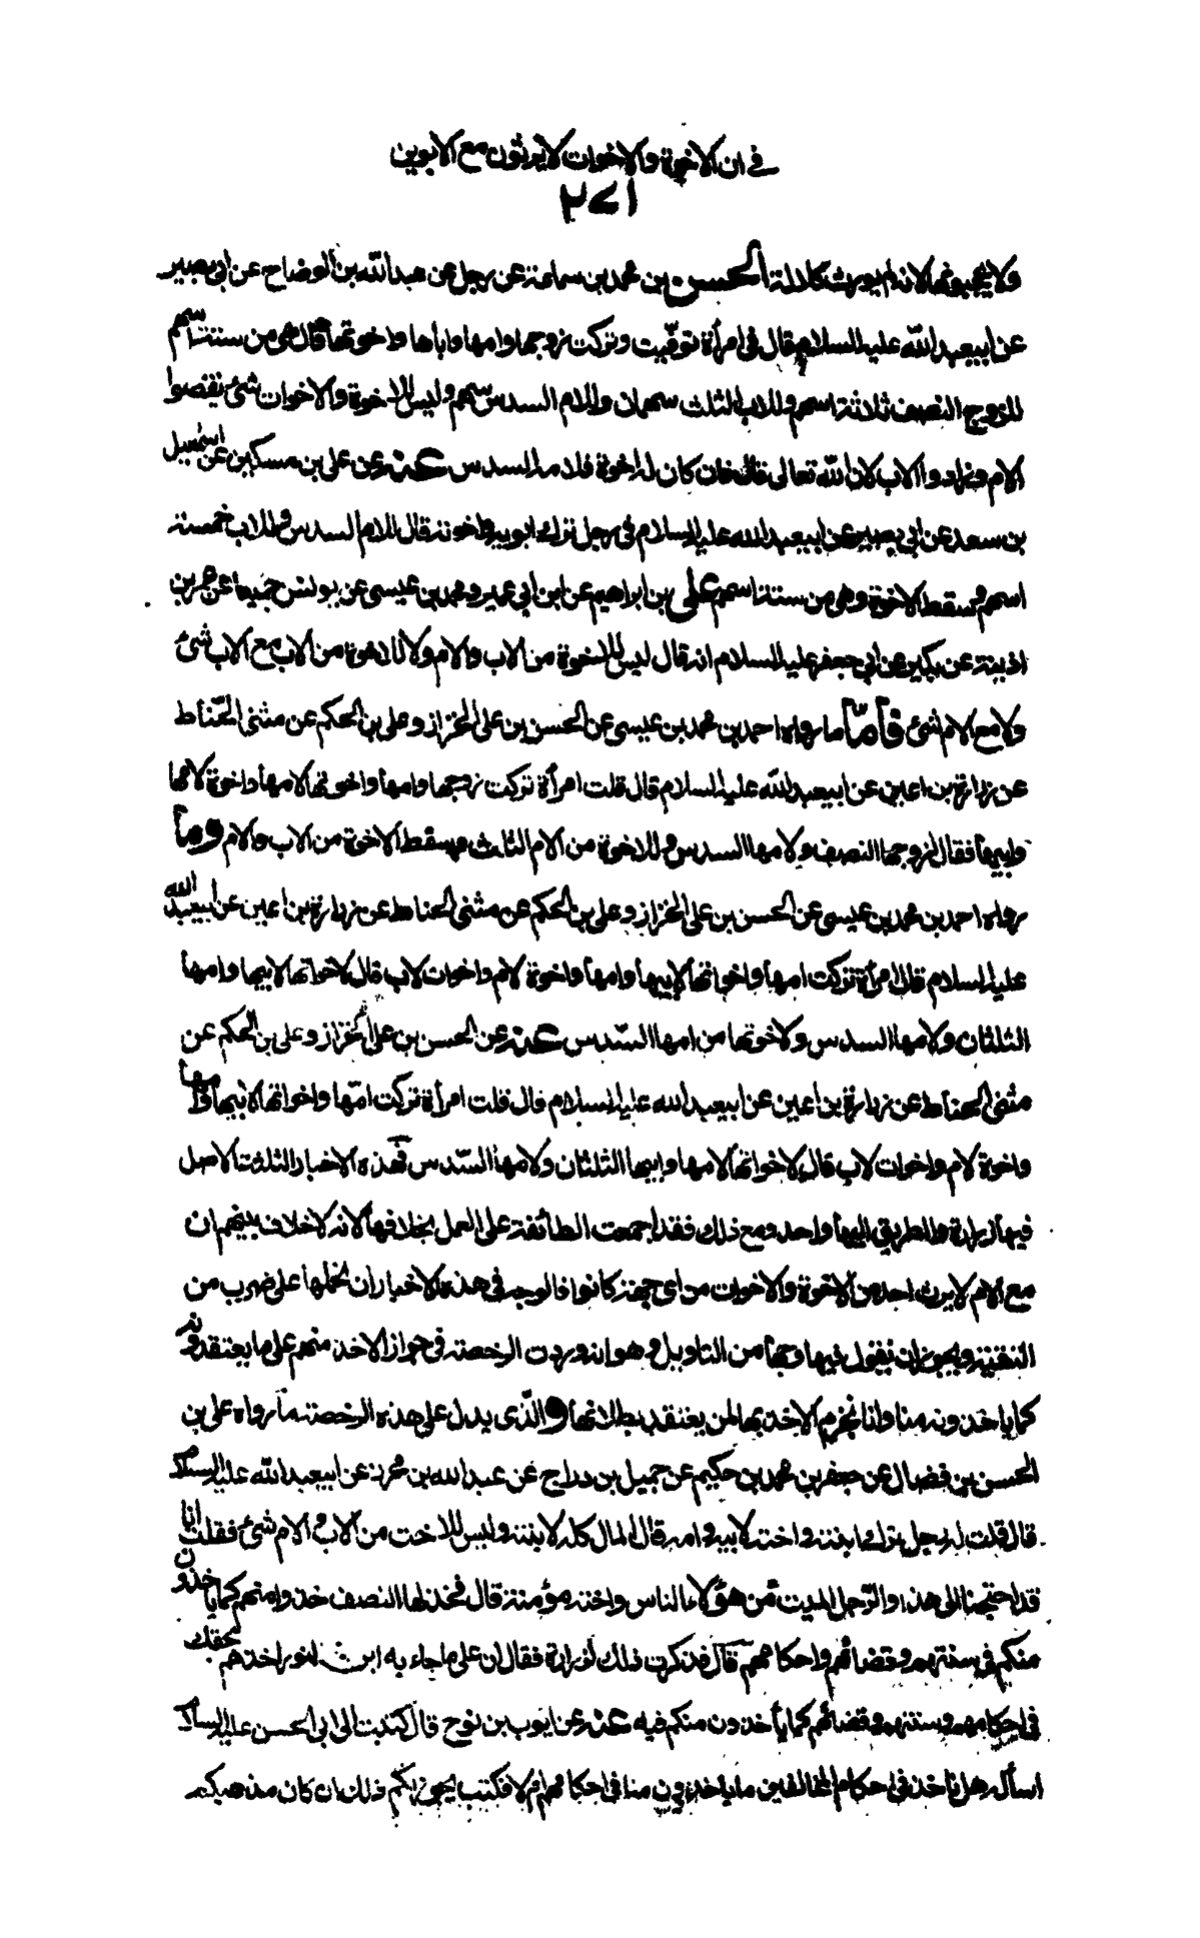 في ان الاخوة والاخوات لا يرثون مع الابوين
٢٧١
ولا يحجبونها لانه لم يورث كلالة الحسن بن محمد بن سماعة عن رجل عن عبد الله بن الوضاح عن ابي بصير
عن ابيعبد الله عليه السلام قال في امرأة توفّيت وتركت زوجها وامها واباها واخوتها قال هى من ستة اسهم
للزوج النصف ثلاثة اسهم وللاب الثلث سهمان وللام السدس سهم وليس للاخوة والاخوات شئ نقصوا
الام وزادوا الاب لان الله تعالى قال فان كان له اخوة فلامه السدس عنه عن على بن مسكين عن اسمعيل
بن سعد عن ابي بصير عن ابيعبد الله عليه السلام في رجل ترك ابويه واخوته قال للام السدس وللاب خمسة
اسهم وسقط الاخوة وهى من ستة اسهم على بن ابراهيم عن ابن ابي عمير ومحمد بن عيسى عن يونس جميعا عن عمر بن
اذينة عن بكير عن ابي جعفر عليه السلام انه قال ليس للاخوة من الاب والام ولا للاخوة من الاب مع الاب شئ
ولا مع الام شئ فأمّا ما رواه احمد بن محمد بن عيسى عن الحسن بن على الخزاز وعلى بن الحكم عن مثنى الحنّاط
عن زرارة بن اعين عن ابيعبد الله عليه السلام قال قلت امرأة تركت زوجها وامها واخوتها لامها واخوة لامها
وابيها فقال لزوجها النصف ولامها السدس وللاخوة من الام الثلث وسقط الاخوة من الاب والام وما
رواه احمد بن محمد بن عيسى عن الحسن بن على الخزاز وعلى بن الحكم عن مثنى الحناط عن زرارة بن اعين عن ابيعبد الله
عليه السلام قال امرأة تركت امها واخواتها لابيها وامها واخوة لام واخوات لاب قال لاخواتها لابيها وامها
الثلثان ولامها السدس ولاخوتها من امها السّدس عنه عن الحسن بن على الخزاز وعلى بن الحكم عن
مثنى الحناط عن زرارة بن اعين عن ابيعبد الله عليه السلام قال قلت امرأة تركت امّها واخواتها لابيها وامها
واخوة لام واخوات لاب قال لاخواتها لامها وابيها الثلثان ولامها السّدس فهذه الاخبار الثلثة الاصل
فيها زرارة والطريق اليها واحد ومع ذلك فقد اجمعت الطائفة على العمل بخلافها لانه لا خلاف بينهم ان
مع الام لا يرث احد من الاخوة والاخوات من اى جهة كانوا فالوجه في هذه الاخبار ان نحملها على ضرب من
التقية ويجوز ان نقول فيها وجها من التاويل وهو انه وردت الرخصة في جواز الاخذ منهم على ما يعتقدونه
كما ياخذونه منا وانا نحرم الاخذ بها لمن يعتقد بطلانها والّذى يدل على هذه الرخصة ما رواه على بن
الحسن بن فضال عن جعفر بن محمد بن حكيم عن جميل بن دراج عن عبد الله بن محرز عن ابيعبد الله عليه السلام
قال قلت له رجل ترك ابنته واخته لابيه وامه قال المال كله لابنته وليس للاخت من الاب والام شئ فقلت انا
قد احتجنا الى هذا والرّجل الميت من هؤلاء الناس واخته مؤمنة قال فخذ لها النصف خذوا منهم كما ياخذون
منكم في سنتهم وقضائهم واحكامهم قال فذكرت ذلك لزرارة فقال ان على ما جاء به ابن لنورا خذهم بحقك
في احكامهم وسنتهم وقضائهم كما يأخذون منكم فيه عنه عن ايوب بن نوح قال كتبت الى ابى الحسن عليه السلام
اسأله هل ناخذ في احكام المخالفين ما ياخذون منا في احكامهم ام لا فكتب يجوز لكم ذلك ان كان مذهبكم